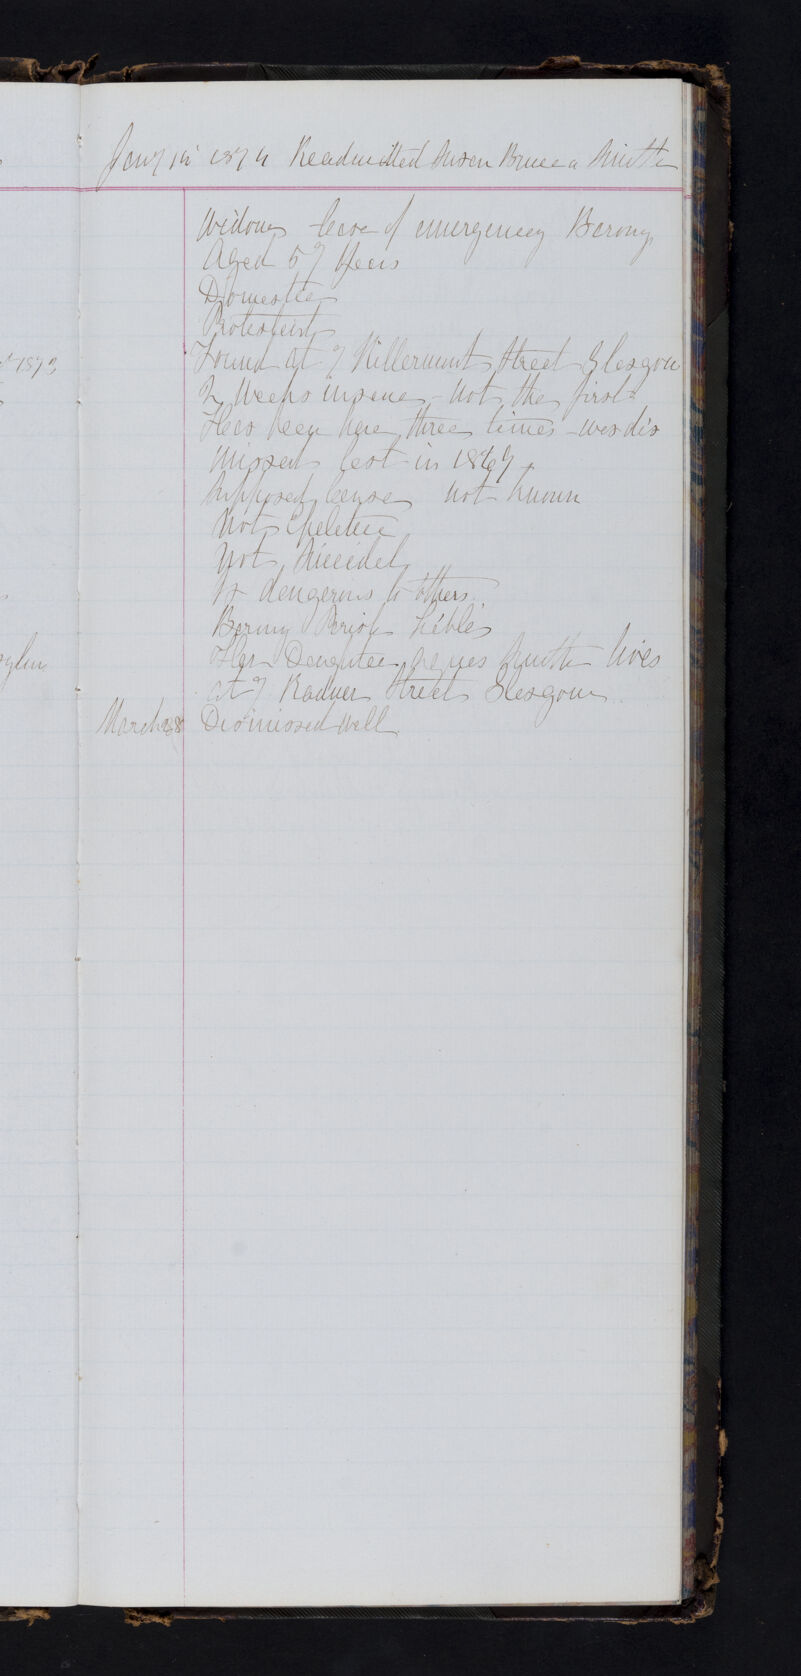 1873
Jany 12 1874 Readmitted Susan Bruce a Smith
Widow Case of emergency Barony
Aged 57 Years
Domestic
Protestant
Found at 7 Killermont Street Glasgow
2 Weeks insane - Not the first
Has been here three times - was dis
missed last in 1867
Supposed cause not known
Not Epileptic
Not Suicidal
Is dangerous to others
Barony Parish liable
Her Daughter Smith lives
at 7 Street Glasgow
March 28 Dismissed Well